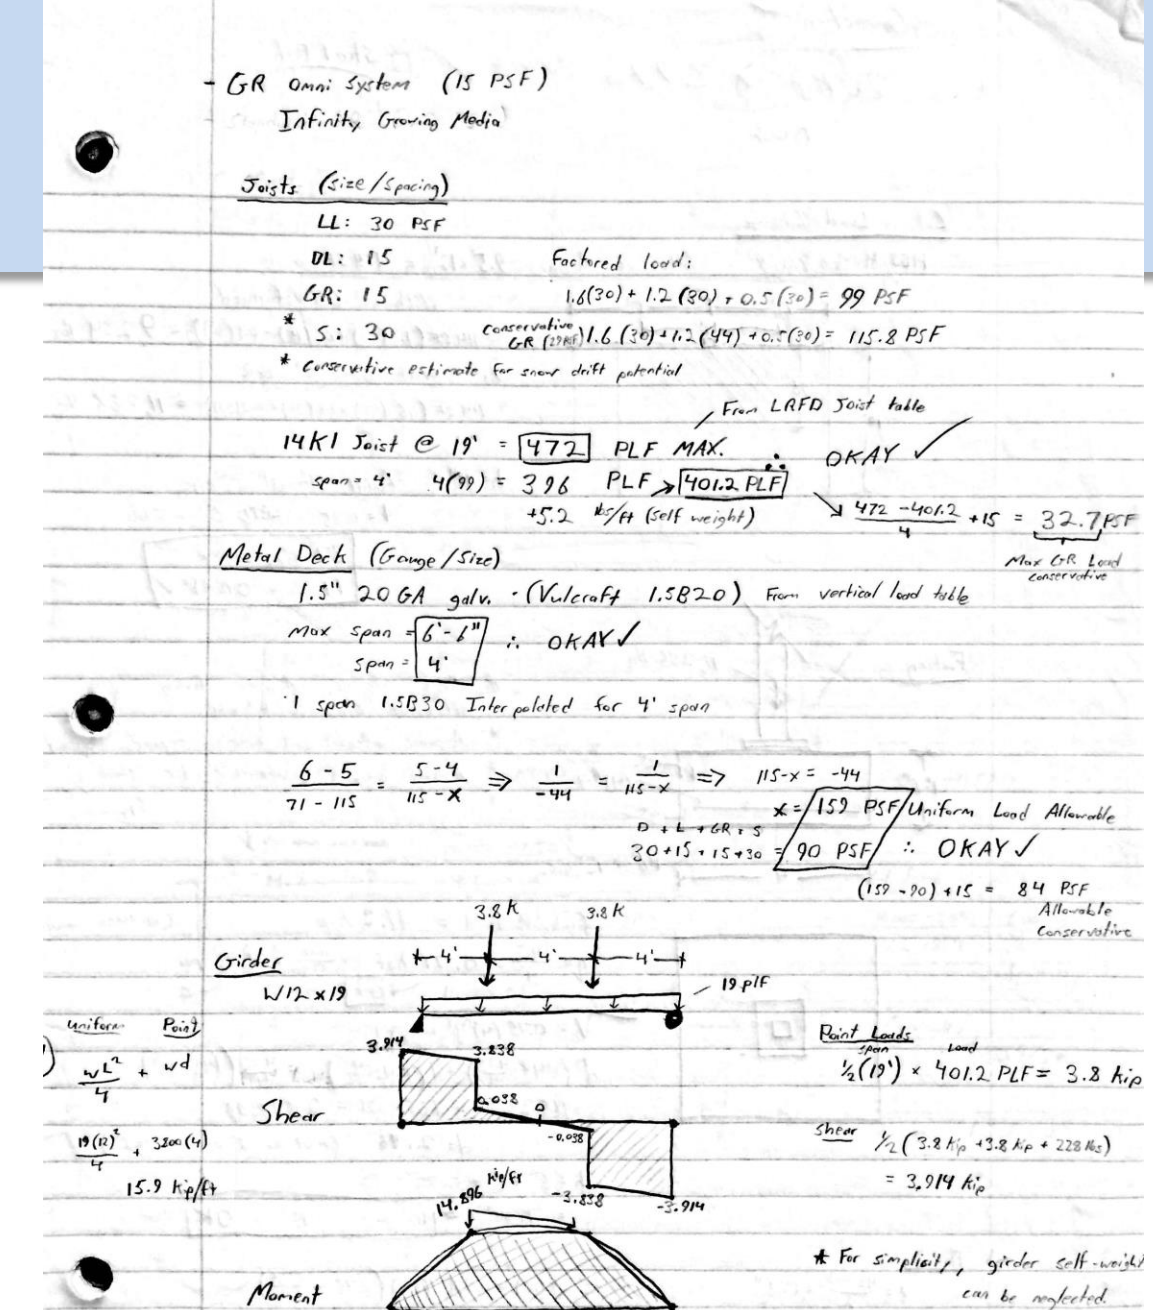 - GR Omni System (15 PSF)
Infinity Growing Media
Joists (Size/Spacing)
LL: 30 PSF
DL: 15
Factored load:
GR: 15
1.6(30) + 1.2(30) + 0.5(30) = 99 PSF
* S: 30
Conservative GR (29 PSF) 1.6(30) + 1.2(44) + 0.5(30) = 115.8 PSF
* Conservative estimate for snow drift potential
From LRFD Joist table
14K1 Joist @ 19' = 472 PLF MAX. ∴ OKAY ✓
span = 4' 4(99) = 396 PLF → 401.2 PLF
+5.2 lbs/ft (self weight)
472 - 401.2 / 4 + 15 = 32.7 PSF
Max GR Load
conservative
Metal Deck (Gauge/Size)
1.5" 20 GA galv. - (Vulcraft 1.5B20) From vertical load table
Max span = 6'-6" ∴ OKAY ✓
span = 4'
1 span 1.5B30 Interpolated for 4' span
6-5 / 71-115 = 5-4 / 115-x ⇒ 1 / -44 = 1 / 115-x ⇒ 115-x = -44
x = 159 PSF Uniform Load Allowable
D + L + GR + S
30+15+15+30 = 90 PSF ∴ OKAY ✓
(159-90) + 15 = 84 PSF
Allowable
Conservative
3.8 K 3.8 K
Girder
4' 4' 4'
W12 x 19
19 plf
Uniform Point
wL² / 4 + wd
19(12)² / 4 + 3800(4)
15.9 kip/ft
Point Loads
span Load
1/2(19') × 401.2 PLF = 3.8 kip
3.914 3.838
0.038
0
Shear
-0.038
-3.838
-3.914
Shear 1/2(3.8 kip + 3.8 kip + 228 lbs)
= 3.914 kip
14.896 kip/ft
Moment
* For simplicity, girder self-weight
can be neglected